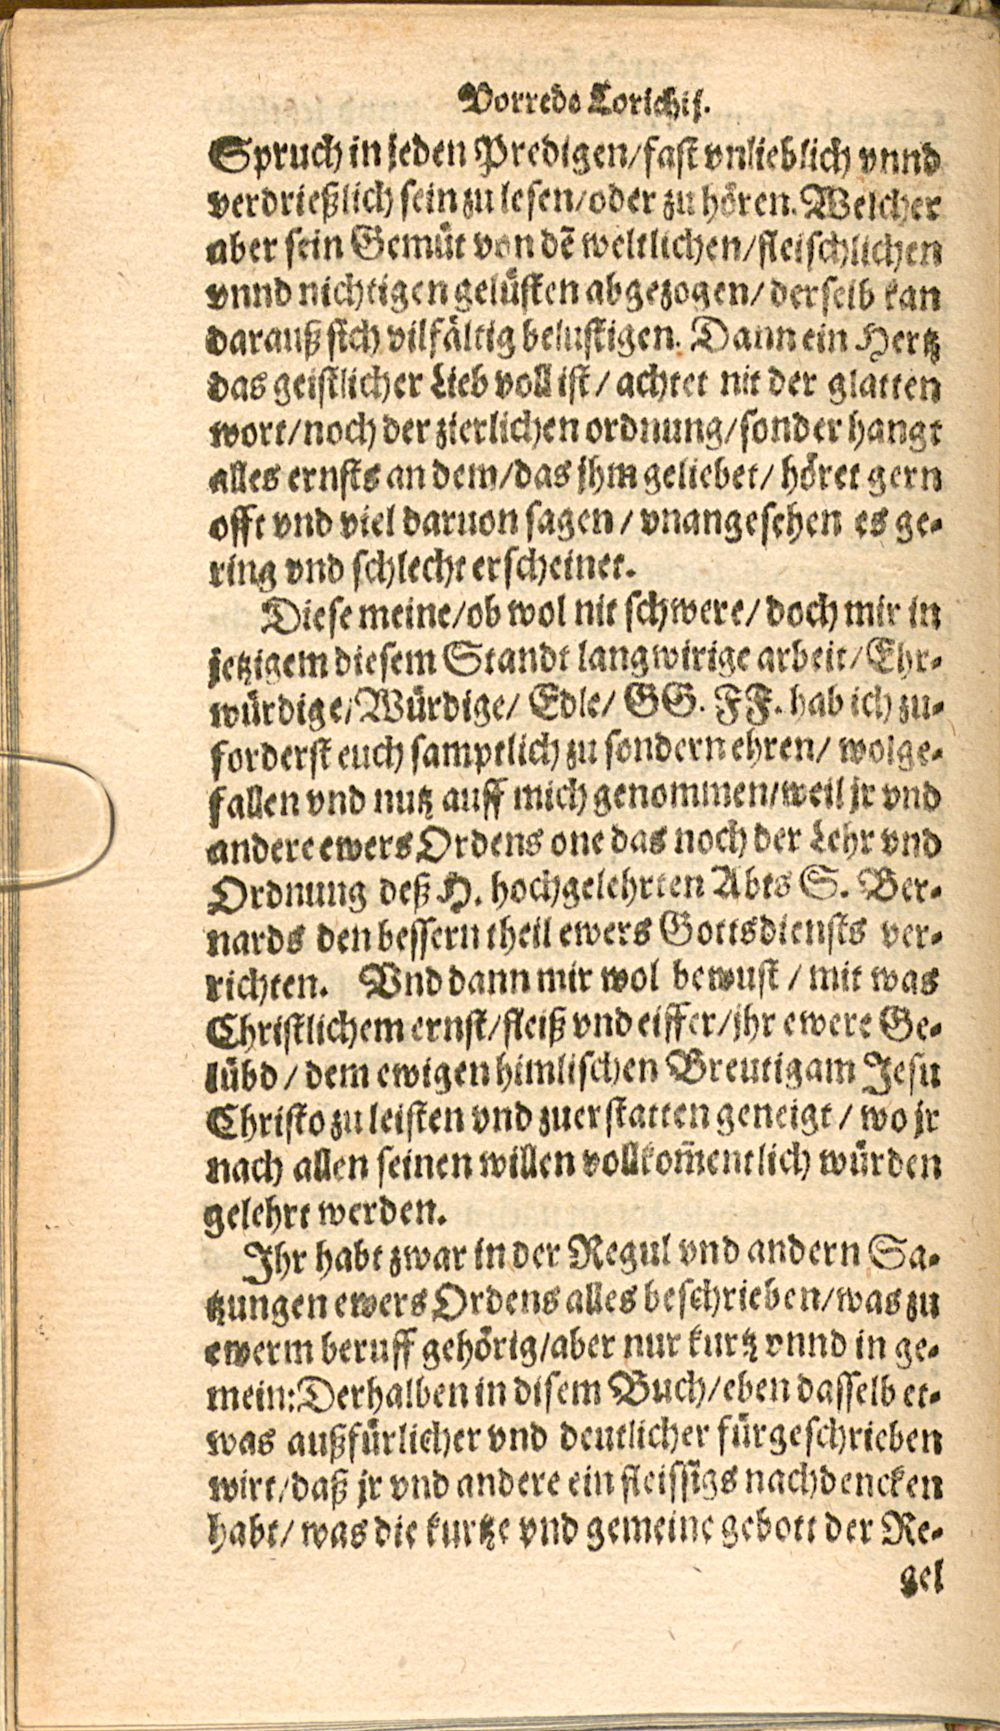 Vorrede Lorichij.
Spruch in jeden Predigen/fast vnlieblich vnnd
verdrießlich sein zu lesen/oder zu hören. Welcher
aber sein Gemüt von dē weltlichen/fleischlichen
vnnd nichtigen gelüsten abgezogen/derselb kan
darauß sich vilfältig belustigen. Dann ein Hertz
das geistlicher Lieb voll ist/achtet nit der glatten
wort/noch der zierlichen ordnung/sonder hangt
alles ernsts an dem/das jhm geliebet/höret gern
offt vnd viel daruon sagen/vnangesehen es ge-
ring vnd schlecht erscheinet.
Diese meine/ob wol nit schwere/doch mir in
jetzigem diesem Standt langwirige arbeit/Ehr-
würdige/Würdige/Edle/GG. FF. hab ich zu-
forderst euch samptlich zu sondern ehren/wolge-
fallen vnd nutz auff mich genommen/weil jr vnd
andere ewers Ordens one das noch der Lehr vnd
Ordnung deß H. hochgelehrten Abts S. Ber-
nards den bessern theil ewers Gottsdiensts ver-
richten. Vnd dann mir wol bewust/mit was
Christlichem ernst/fleiß vnd eiffer/jhr ewere Ge-
lübd/dem ewigen himlischen Breutigam Jesu
Christo zu leisten vnd zuerstatten geneigt/wo jr
nach allen seinen willen vollkom̄entlich würden
gelehrt werden.
Ihr habt zwar in der Regul vnd andern Sa-
tzungen ewers Ordens alles beschrieben/was zu
ewerm beruff gehörig/aber nur kurtz vnnd in ge-
mein: Derhalben in disem Buch/eben dasselb et-
was außfürlicher vnd deutlicher fürgeschrieben
wirt/daß jr vnd andere ein fleissigs nachdencken
habt/was die kurtze vnd gemeine gebott der Re-
gel